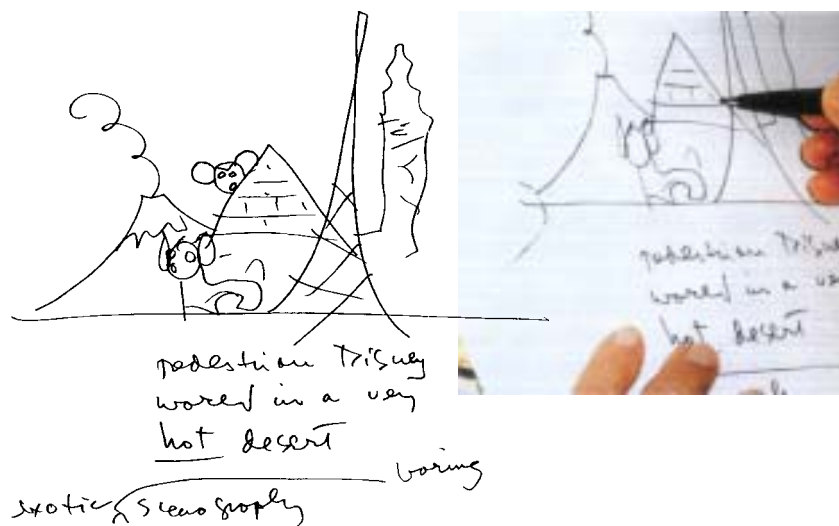 pedestrian Disney
world in a very
hot desert
boring
exotic scenography
pedestrian Disney
world in a ve
hot desert